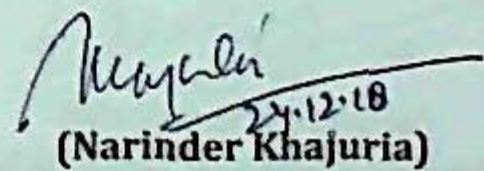 24.12.18
(Narinder Khajuria)